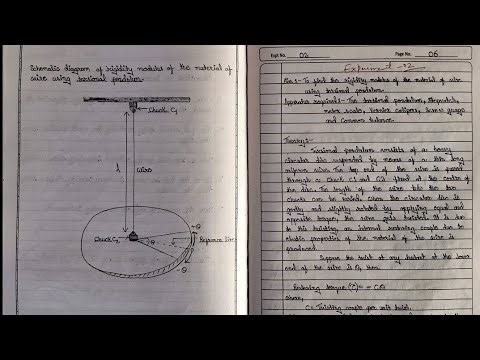 Schematic diagram of Rigidity modulus of the material of
wire using torsional pendulum.
Chuck C1
l
wire
Chuck C2
θ
θ
-θ
Reference line
-θ
Expt No. 02
Page No. 06
Experiment - 02
Aim :- To find the rigidity modulus of the material of wire
using torsional pendulum.
Apparatus required :- The torsional pendulum, stopwatch,
metre scale, Vernier calipers, screw gauge
and Common balance.
Theory :-
Torsional pendulum consists of a heavy
circular disc suspended by means of a thin long
uniform wire. The top end of the wire is passed
through a chuck C1 and C2 fixed at the centre of
the disc. The length of the wire b/w the two
chucks can be varied. When the circular disc is
gently and slightly twisted by applying equal and
opposite torque, the wire gets twisted. It is due
to this twisting, an internal restoring couple due to
elastic properties of the material of the wire is
produced.
Suppose the twist at any instant at the lower
end of the wire is θ, then
Restoring torque (τ) = - Cθ
where,
C = Twisting couple per unit twist.